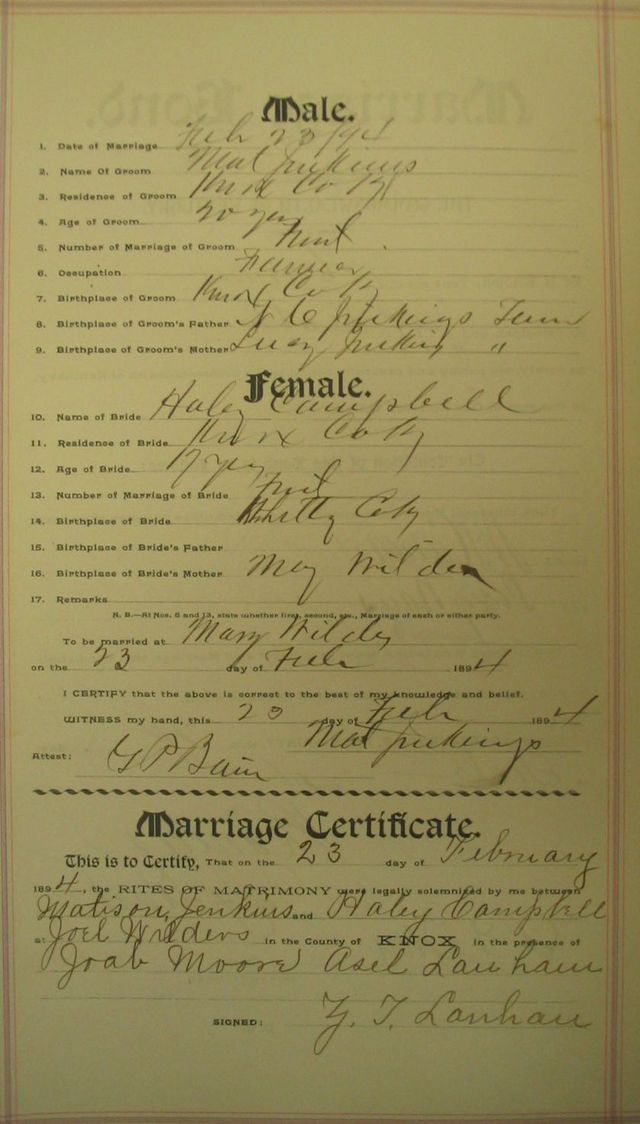 Male.
1. Date of Marriage Feb 23/94
2. Name Of Groom Mat Jenkings
3. Residence of Groom Knox Co Ky
4. Age of Groom 20 yrs
5. Number of Marriage of Groom First
6. Occupation Farmer
7. Birthplace of Groom Knox Co Ky
8. Birthplace of Groom's Father Jenkings Tenn
9. Birthplace of Groom's Mother Lucy Jenkins "
Female.
10. Name of Bride Haley Campbell
11. Residence of Bride Knox Co Ky
12. Age of Bride 17 yrs
13. Number of Marriage of Bride First
14. Birthplace of Bride Whitly Co Ky
15. Birthplace of Bride's Father
16. Birthplace of Bride's Mother Wilder
17. Remarks
N. B.—At Nos. 5 and 13, state whether first, second, etc., Marriage of each or either party.
To be married at Mary Wilders
on the 23 day of Feb 1894
I CERTIFY that the above is correct to the best of my knowledge and belief.
WITNESS my hand, this 23 day of Feb 1894
Mat Jenkings
Attest: G P Bain
Marriage Certificate.
This is to Certify, That on the 23 day of February
1894, the RITES OF MATRIMONY were legally solemnized by me between
Matison Jenkins and Haley Campbell
at Joel Wilders in the County of KNOX in the presence of
Joab Moore Asel Lanham
SIGNED: T. Lanham